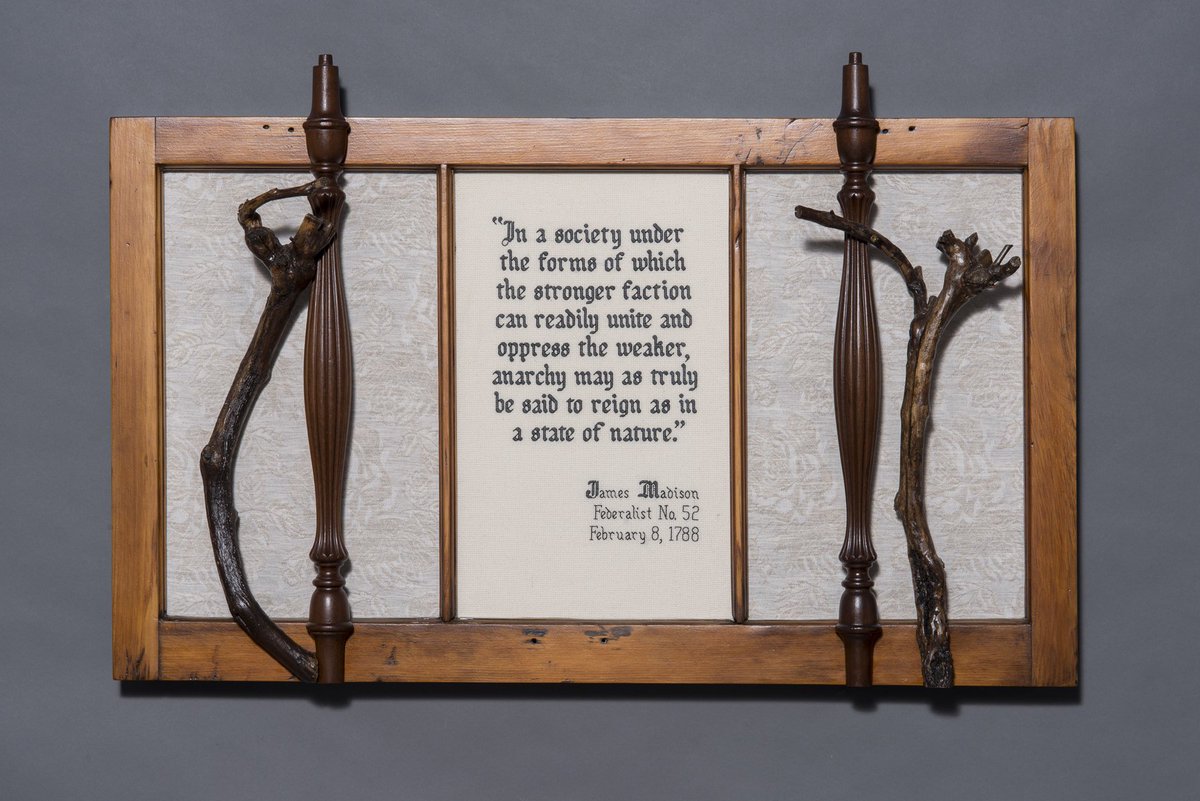 “In a society under
the forms of which
the stronger faction
can readily unite and
oppress the weaker,
anarchy may as truly
be said to reign as in
a state of nature.”
James Madison
Federalist No. 52
February 8, 1788